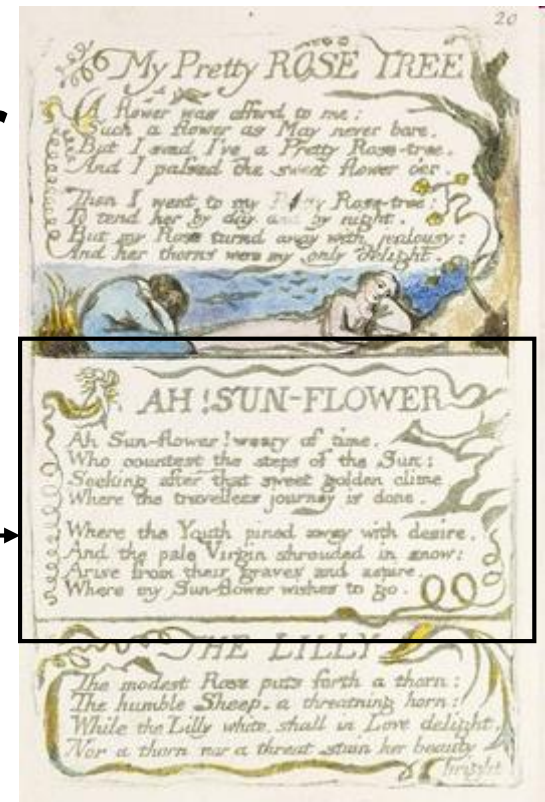 20
My Pretty ROSE TREE
A flower was offerd to me:
Such a flower as May never bore.
But I said I've a Pretty Rose-tree.
And I passed the sweet flower o'er.
Then I went to my Pretty Rose-tree:
To tend her by day and by night.
But my Rose turnd away with jealousy:
And her thorns were my only delight.
AH! SUN-FLOWER
Ah Sun-flower! weary of time.
Who countest the steps of the Sun:
Seeking after that sweet golden clime
Where the travellers journey is done.
Where the Youth pined away with desire,
And the pale Virgin shrouded in snow:
Arise from their graves and aspire,
Where my Sun-flower wishes to go.
THE LILLY
The modest Rose puts forth a thorn:
The humble Sheep, a threatning horn:
While the Lilly white, shall in Love delight,
Nor a thorn nor a threat stain her beauty
bright